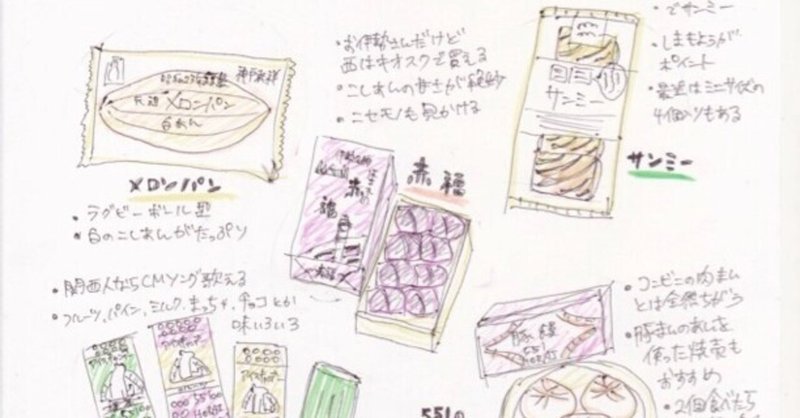 神戸発祥
元祖
メロンパン
白あん
メロンパン
・ラグビーボール型
・白のこしあんがたっぷり
・お伊勢さんだけど
西はキオスクで買える
・こしあんの甘さが絶妙
・ニセモノも見かける
赤福
赤
福
でサンミー
・しまもようが
ポイント
・最近はミニサイズの
4個入りもある
サンミー
サンミー
・関西人ならCMソング歌える
・フルーツ、パイン、ミルク、まっちゃ、チョコとか
味いろいろ
アイスキャンデー
アイスキャンデー
551の
豚饅
・コンビニの肉まん
とは全然ちがう
・豚まんのあじを
使った焼売も
おすすめ
・2個食べたら